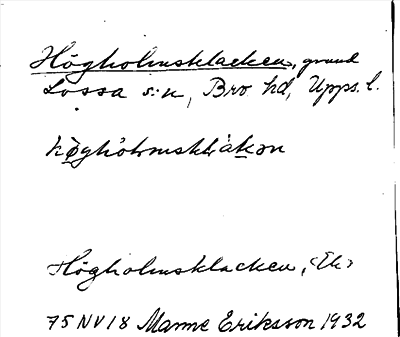 Högholmsklacken, grund
Lossa s:n, Bro hd, Upps. l.
høghòlmsklàkən
Högholmsklacken, <Ek>
75 NV 18 Manne Eriksson 1932